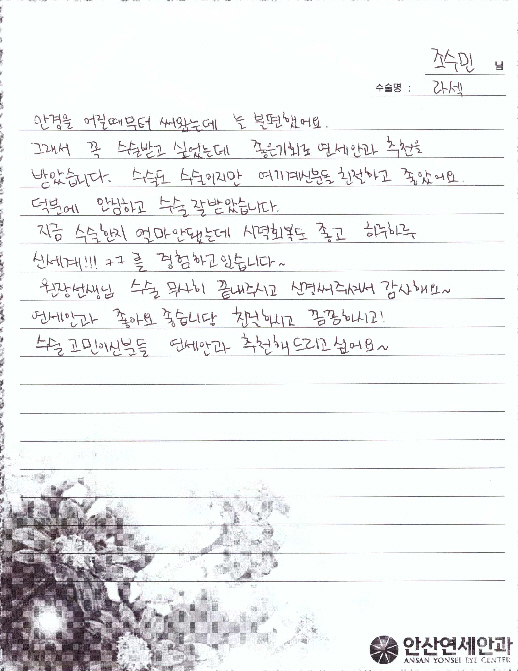 조수민 님
수술명 : 라섹
안경을 어릴때부터 써왔는데 늘 불편했어요.
그래서 꼭 수술받고 싶었는데 좋은기회로 연세안과 추천을
받았습니다. 수술도 수술이지만 여기계신분들 친절하고 좋았어요.
덕분에 안심하고 수술 잘받았습니다.
지금 수술한지 얼마안됐는데 시력회복도 좋고 하루하루
신세계!!! ㅋㅋ를 경험하고있습니다~
원장선생님 수술 무사히 끝내주시고 신경써주셔서 감사해요~
연세안과 좋아요 좋습니당 친절하시고 꼼꼼하시고!
수술 고민이신분들 연세안과 추천해드리고 싶어요~
안산연세안과
ANSAN YONSEI EYE CENTER